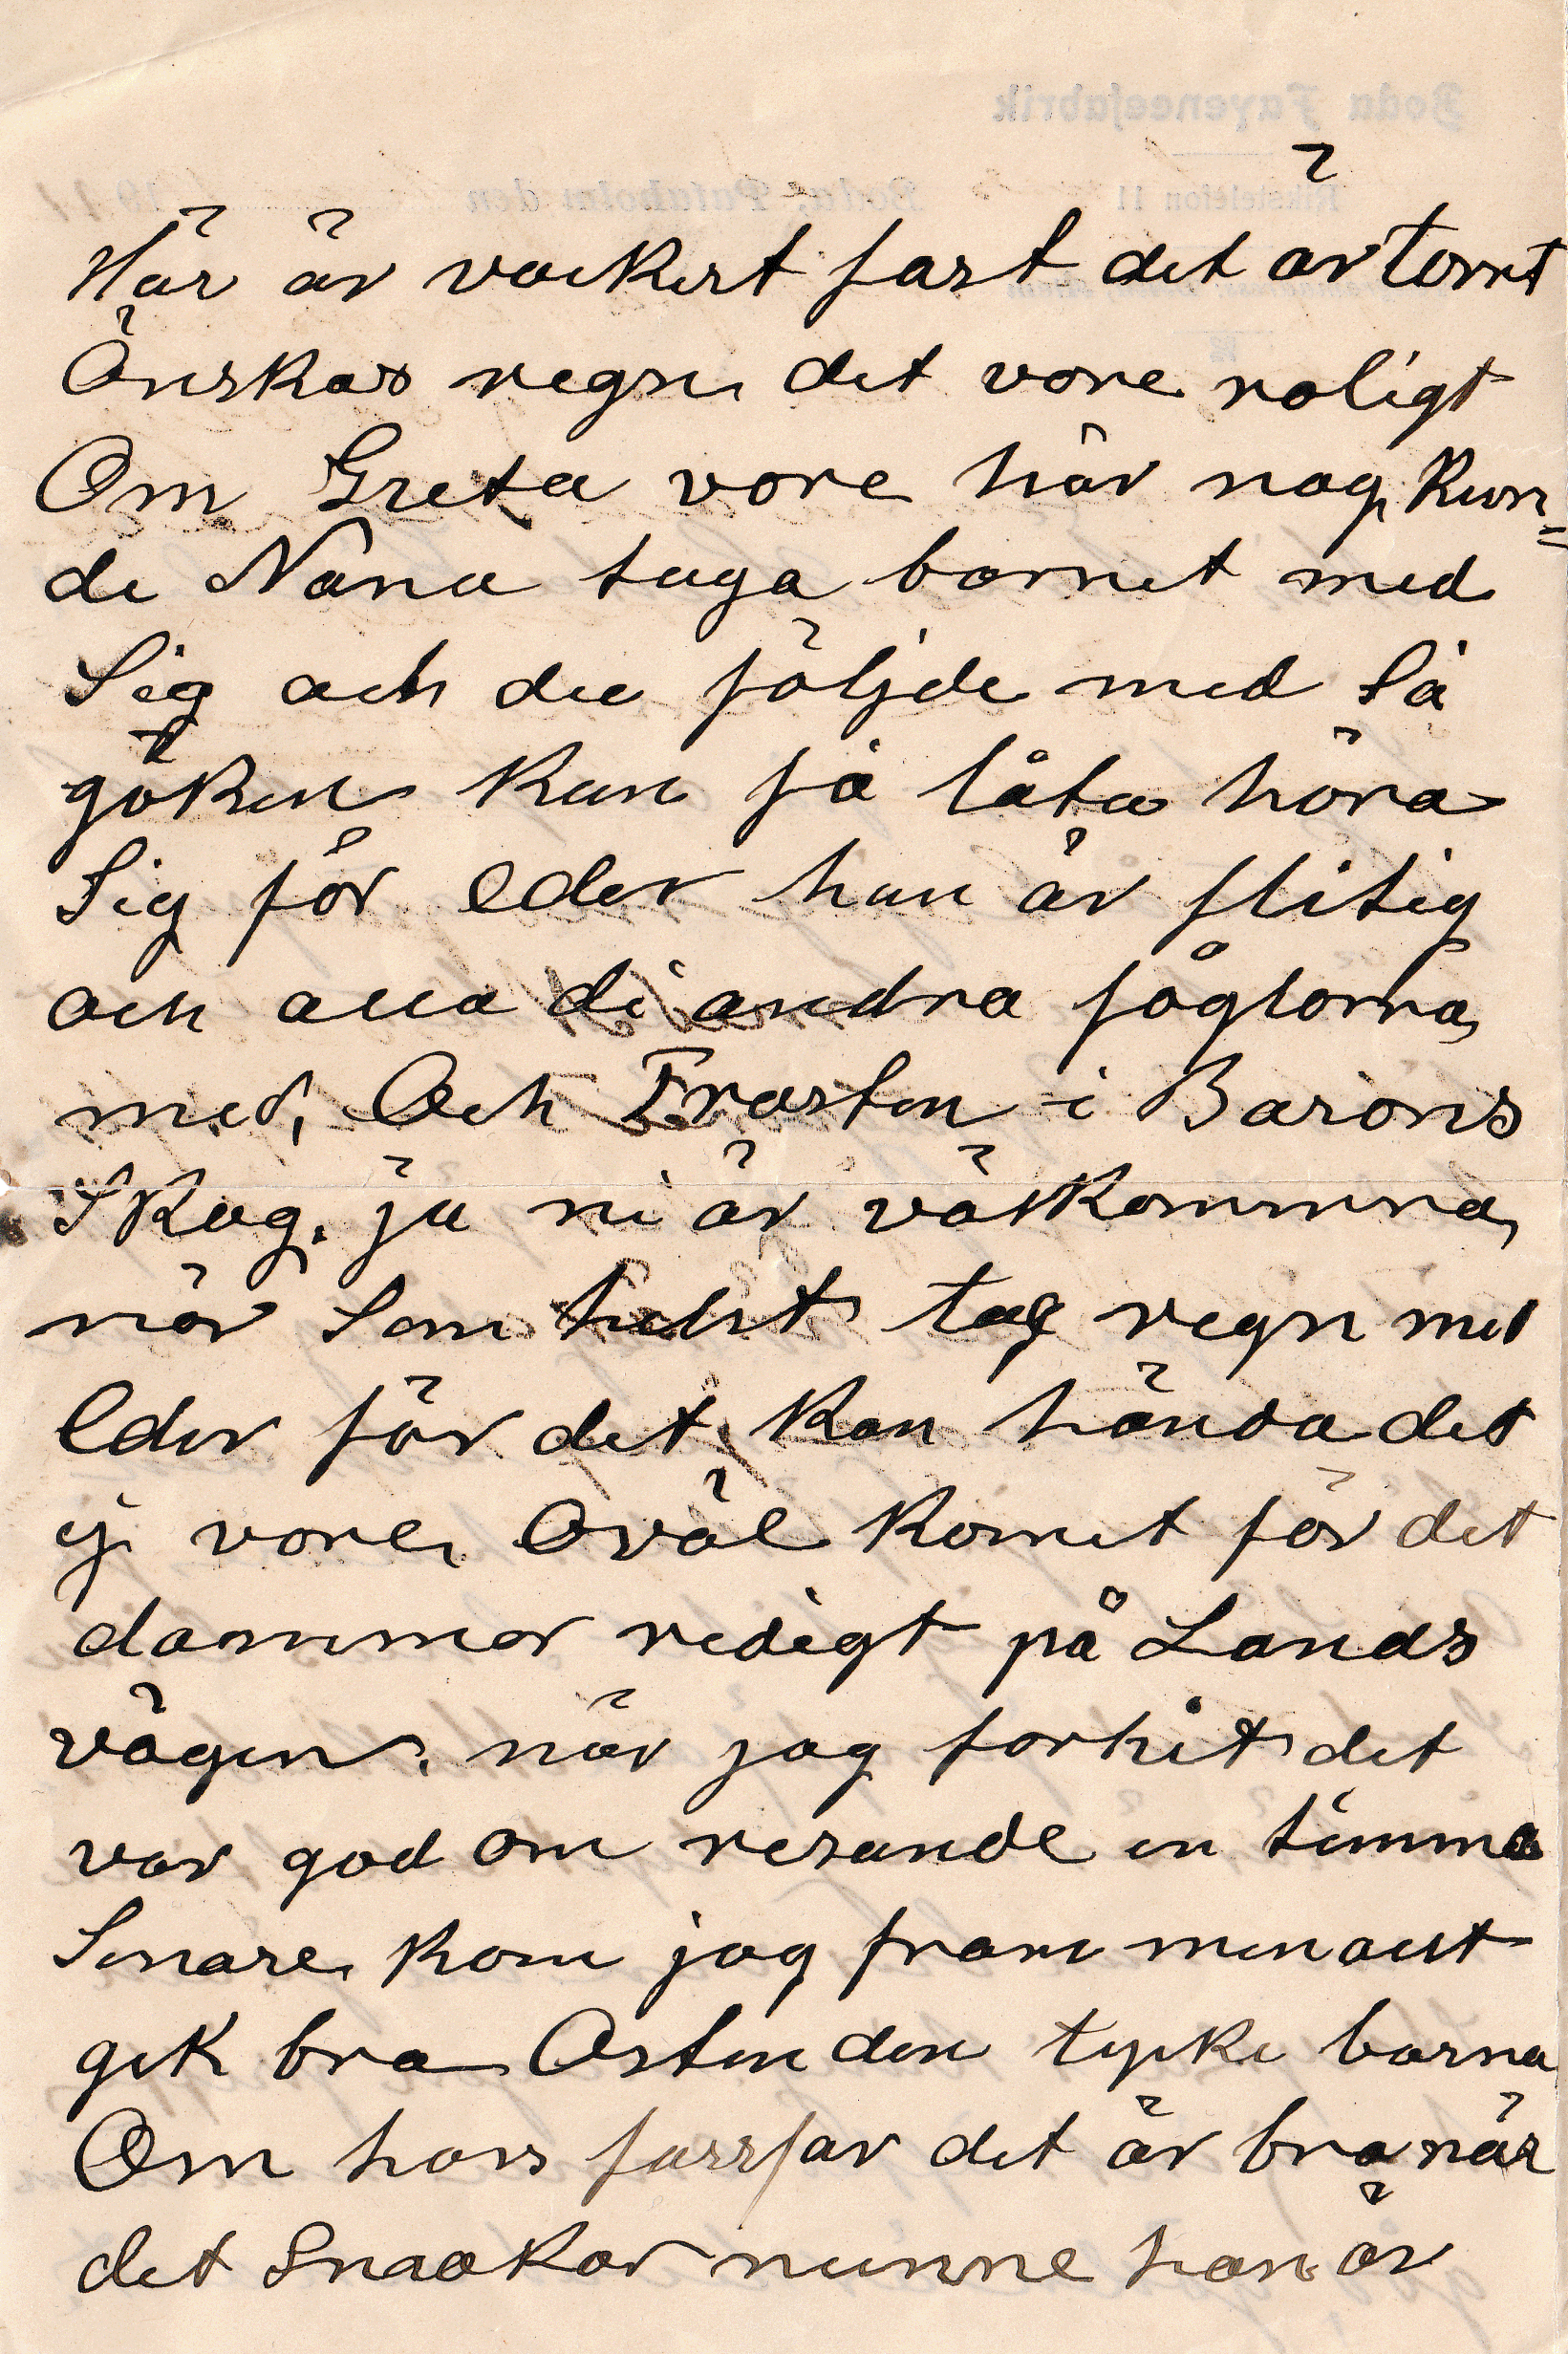 Här är vackert fast det är torrt
Önskar regn det vore roligt
Om Greta vore här nog kun=
de Nana taga barnet med
Sig och du följde med Så
göken kun få låta höra
Sig för eder han är flitig
och alla di andra föglorna
med, Och Trasten i Barons
Skog, ja ni är välkomna
när Som helst tag regn med
Eder för det kan hända det
ej vore Oväl komet för det
dammar redigt på Lands
vägen, när jag for hit det
var god om resande en timma
Senare kom jag fram men allt
gik bra Osten den tycke barna
Om hos farfar det är bra när
det Smakar nunne han är
Boda Fayencefabrik
Rikstelefon 11
Boda, Pataholm den 19